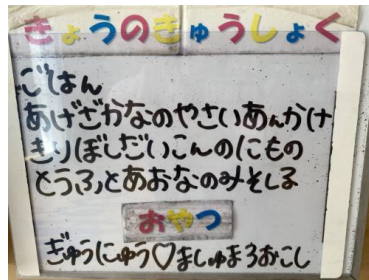 きょうのきゅうしょく
ごはん
あげざかなのやさいあんかけ
きりぼしだいこんのにもの
とうふとあおなのみそしる
おやつ
ぎゅうにゅう♡ましゅまろおこし